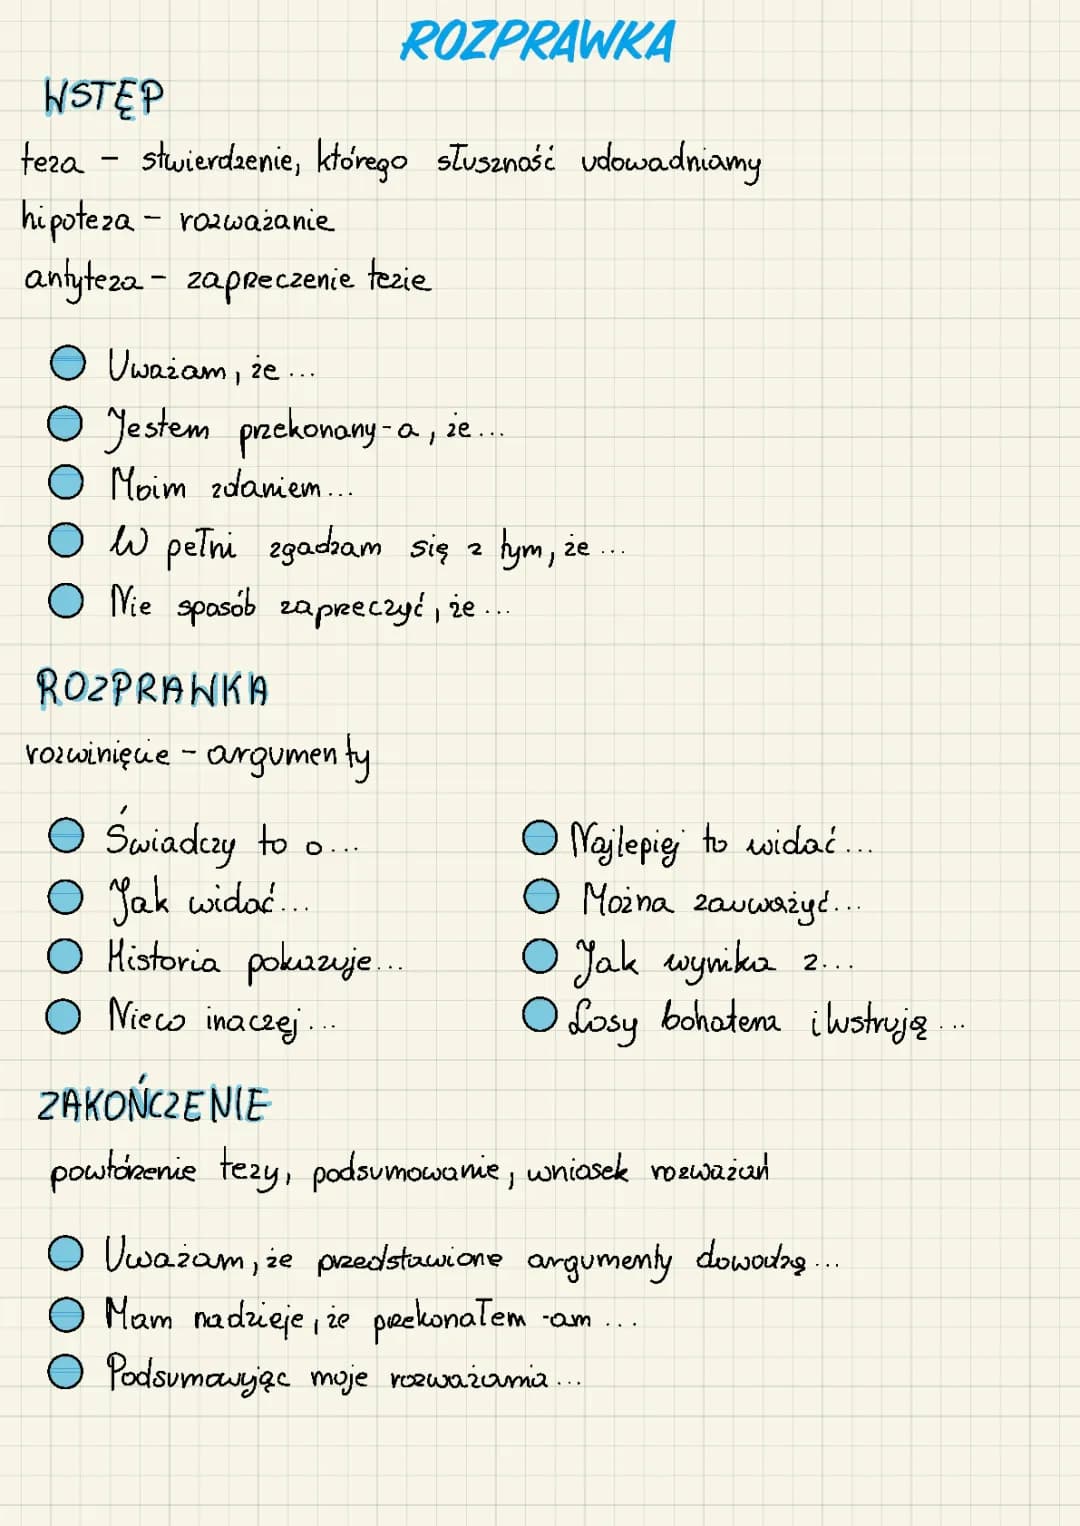 ROZPRAWKA
WSTĘP
teza - stwierdzenie, którego słuszność udowadniamy
hipoteza - rozważanie
antyteza - zaprzeczenie tezie
Uważam, że...
Jestem przekonany-a, że...
Moim zdaniem...
W pełni zgadzam się z tym, że...
Nie sposób zaprzeczyć, że...
ROZPRAWKA
rozwinięcie - argumenty
Świadczy to o...
Jak widać...
Historia pokazuje...
Nieco inaczej...
Najlepiej to widać...
Można zauważyć...
Jak wynika z...
Losy bohatera ilustrują...
ZAKOŃCZENIE
powtórzenie tezy, podsumowanie, wniosek rozważań
Uważam, że przedstawione argumenty dowodzą...
Mam nadzieje, że przekonałem -am...
Podsumowując moje rozważania...